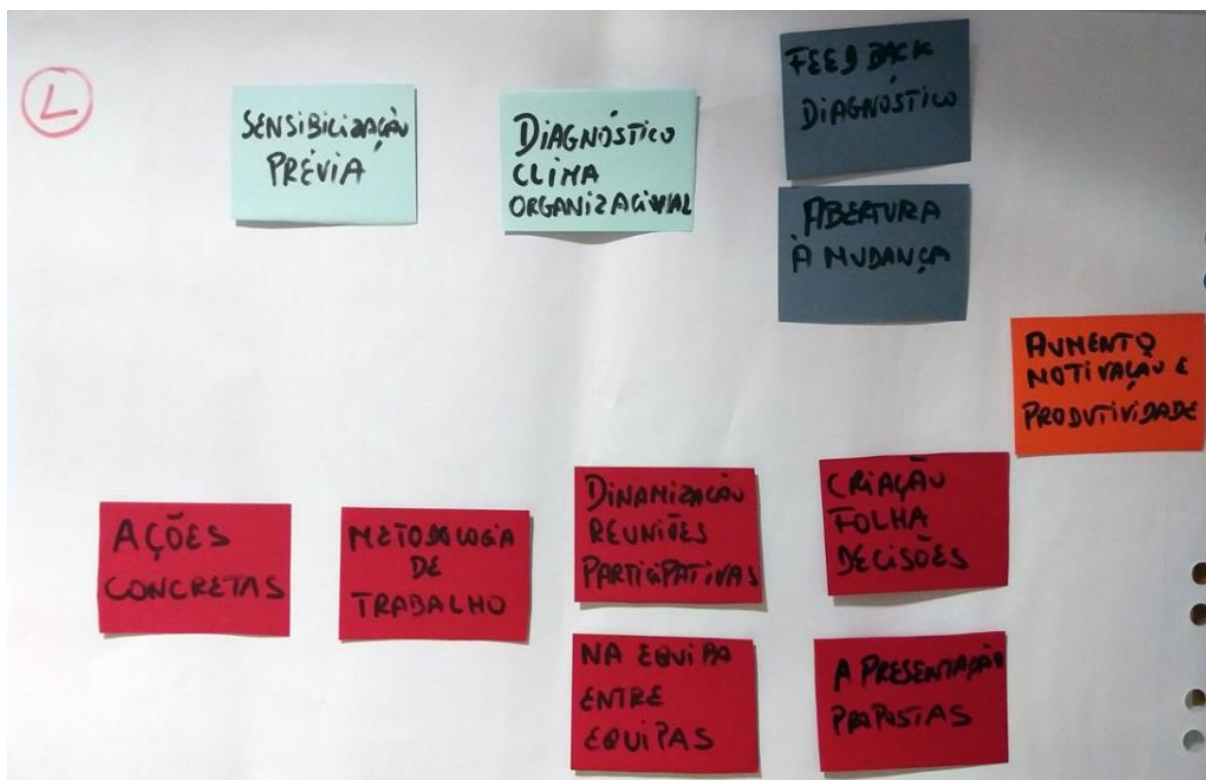 L
SENSIBILIZAÇÃO
PRÉVIA
DIAGNÓSTICO
CLIMA
ORGANIZACIONAL
FEEDBACK
DIAGNÓSTICO
ABERTURA
À MUDANÇA
AUMENTO
MOTIVAÇÃO E
PRODUTIVIDADE
AÇÕES
CONCRETAS
METODOLOGIA
DE
TRABALHO
DINAMIZAÇÃO
REUNIÕES
PARTICIPATIVAS
CRIAÇÃO
FOLHA
DECISÕES
NA EQUIPA
ENTRE
EQUIPAS
APRESENTAÇÃO
PROPOSTAS